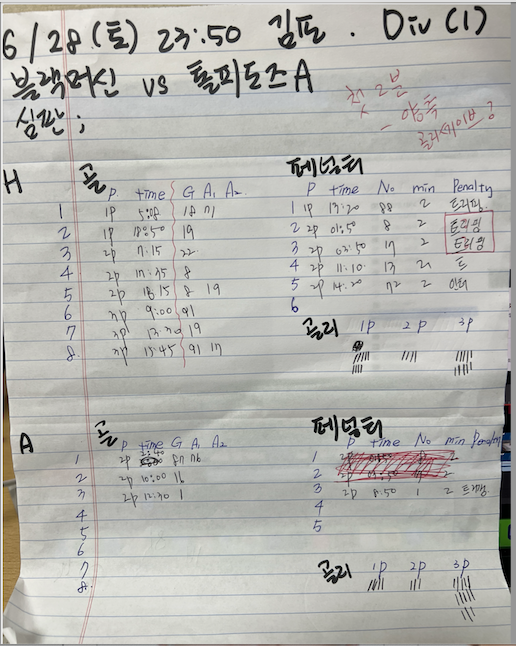 6/28.(토) 23:50 김포. Div(1)
블랙머신 vs 톨피도즈A
심판;
첫 2분
골리세이브?
H 골
P time G A1 A2
1 1P 5:08 18 71
2 1P 18:50 19
3 2P 7:15 22
4 2P 17:35 8
5 2P 18:15 8 19
6 3P 9:00 91
7 3P 13:30 19
8. 3P 15:45 91 17
페널티
P time No min Penalty
1 1P 13:20 88 2 트리핑
2 2P 01:50 8 2 트리핑
3 2P 03:50 17 2 트리핑
4 2P 11:10 13 2 트
5 2P 14:20 72 2 인터
6
골리 1P 2P 3P
A 골
P time G A1 A2
1 2P 87 76
2 2P 10:00 16
3 2P 12:30 1
4
5
6
7
8.
페널티
P time No min Penalty
1
2
3 2P 8:50 1 2 트리핑
4
5
골리 1P 2P 3P